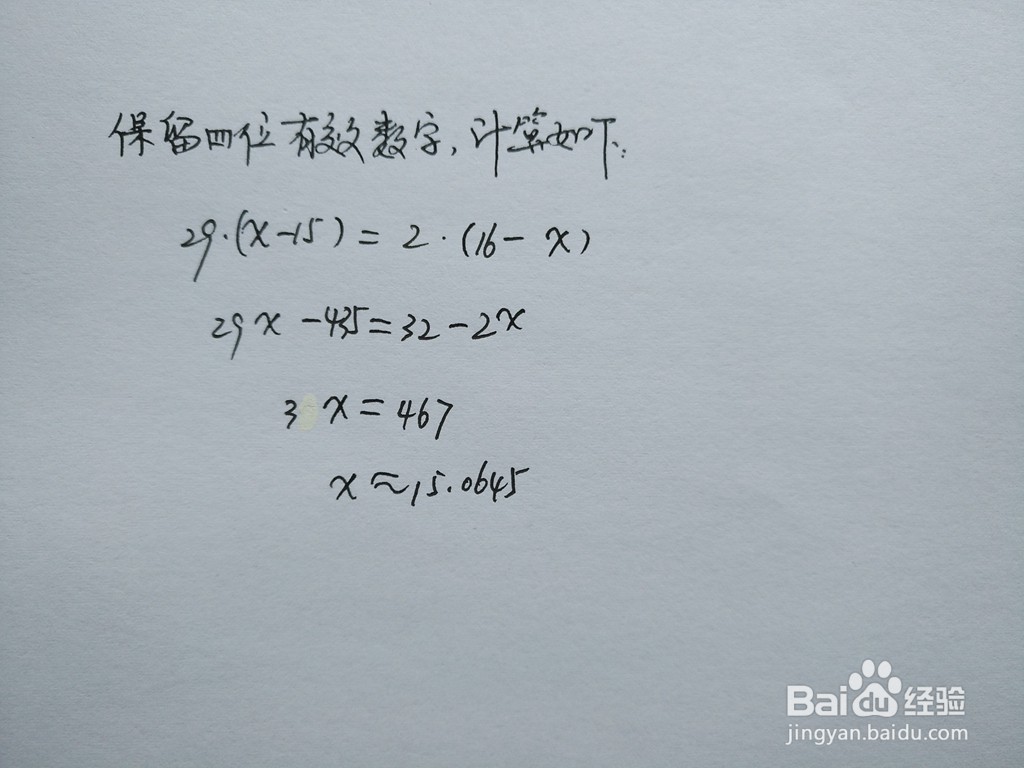 保留四位有效数字,计算如下:
29·(x-15)=2·(16-x)
29x-435=32-2x
3 x=467
x≈15.0645
Baidu经验
jingyan.baidu.com